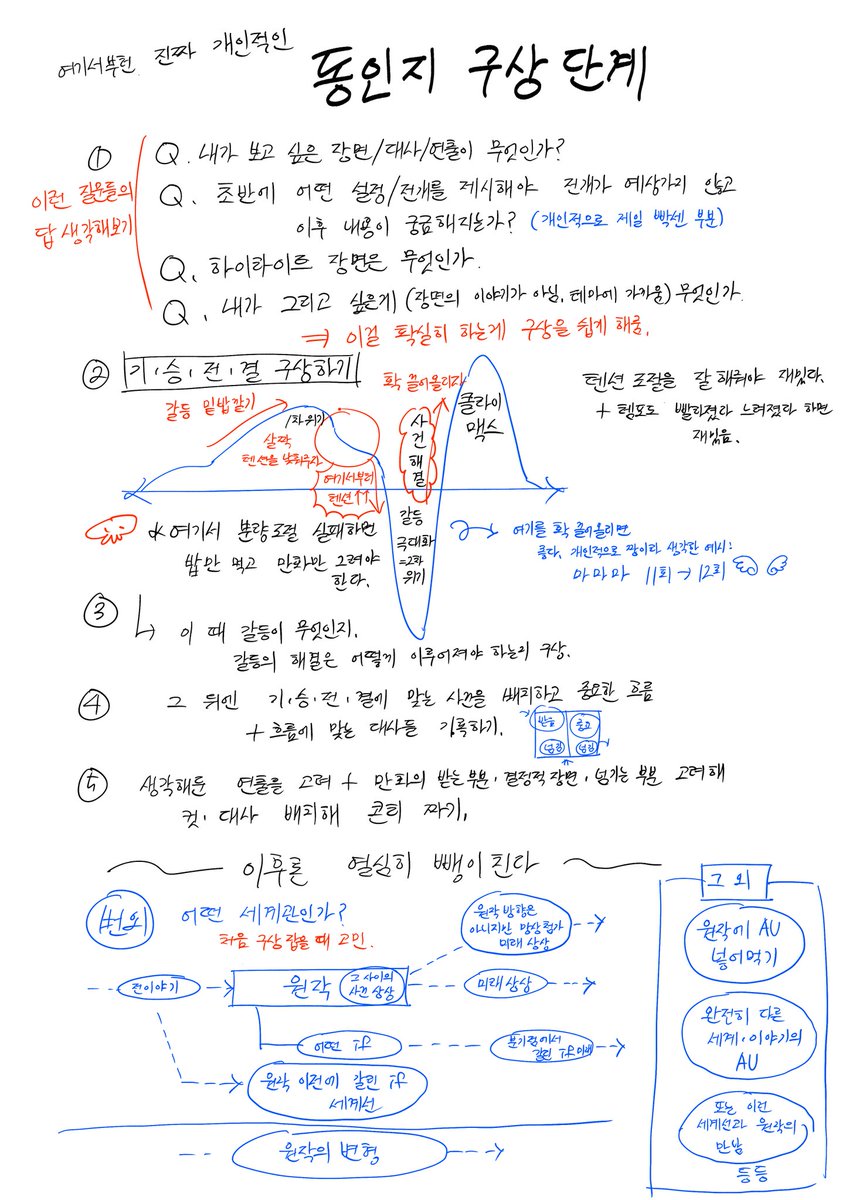 여기서부턴 진짜 개인적인
동인지 구상 단계
①
이런 질문들의
답 생각해보기
Q. 내가 보고 싶은 장면/대사/연출이 무엇인가?
Q. 초반에 어떤 설정/전개를 제시해야 전개가 예상가지 않고
이후 내용이 궁금해지는가? (개인적으로 제일 빡센 부분)
Q. 하이라이트 장면은 무엇인가.
Q. 내가 그리고 싶은게 (장면의 이야기가 아님, 테마에 가까움) 무엇인가.
⇒ 이걸 확실히 하는게 구상을 쉽게 해줌.
② 기·승·전·결 구상하기
갈등 밑밥깔기
1차 위기
살짝
텐션을 낮춰주자
여기서부터
텐션↑↑
확 끌어올리자
사건 해결
클라이
맥스
갈등
극대화
=2차
위기
텐션 조절을 잘 해줘야 재밌다.
+ 템포도 빨라졌다 느려졌다 하면
재밌음.
* 여기서 분량조절 실패하면
밥만 먹고 만화만 그려야
한다.
여기를 확 끌어올리면
좋다. 개인적으로 짱이라 생각한 예시:
마마마 11화 → 12화
③ 이 때 갈등이 무엇인지.
갈등의 해결은 어떻게 이루어져야 하는지 구상.
④ 그 뒤엔 기·승·전·결에 맞는 사건을 배치하고 중요한 흐름
+ 흐름에 맞는 대사들 기록하기.
받음
중요
넘김
넘김
⑤ 생각해둔 연출을 고려 + 만화의 받는부분·결정적 장면·넘기는 부분 고려해
컷·대사 배치해 콘티 짜기.
이후론 열심히 뺑이친다
번외
어떤 세계관인가?
처음 구상 잡을 때 고민.
원작 방향은
아니지만 망상첨가
미래 상상
전이야기
원작
그 사이의
사건 상상
미래상상
어떤 if
분기점에서
갈린 if미래
원작 이전에 갈린 if
세계선
원작의 변형
그 외
원작에 AU
넣어먹기
완전히 다른
세계·이야기의
AU
또는 이런
세계선과 원작의
만남
등등